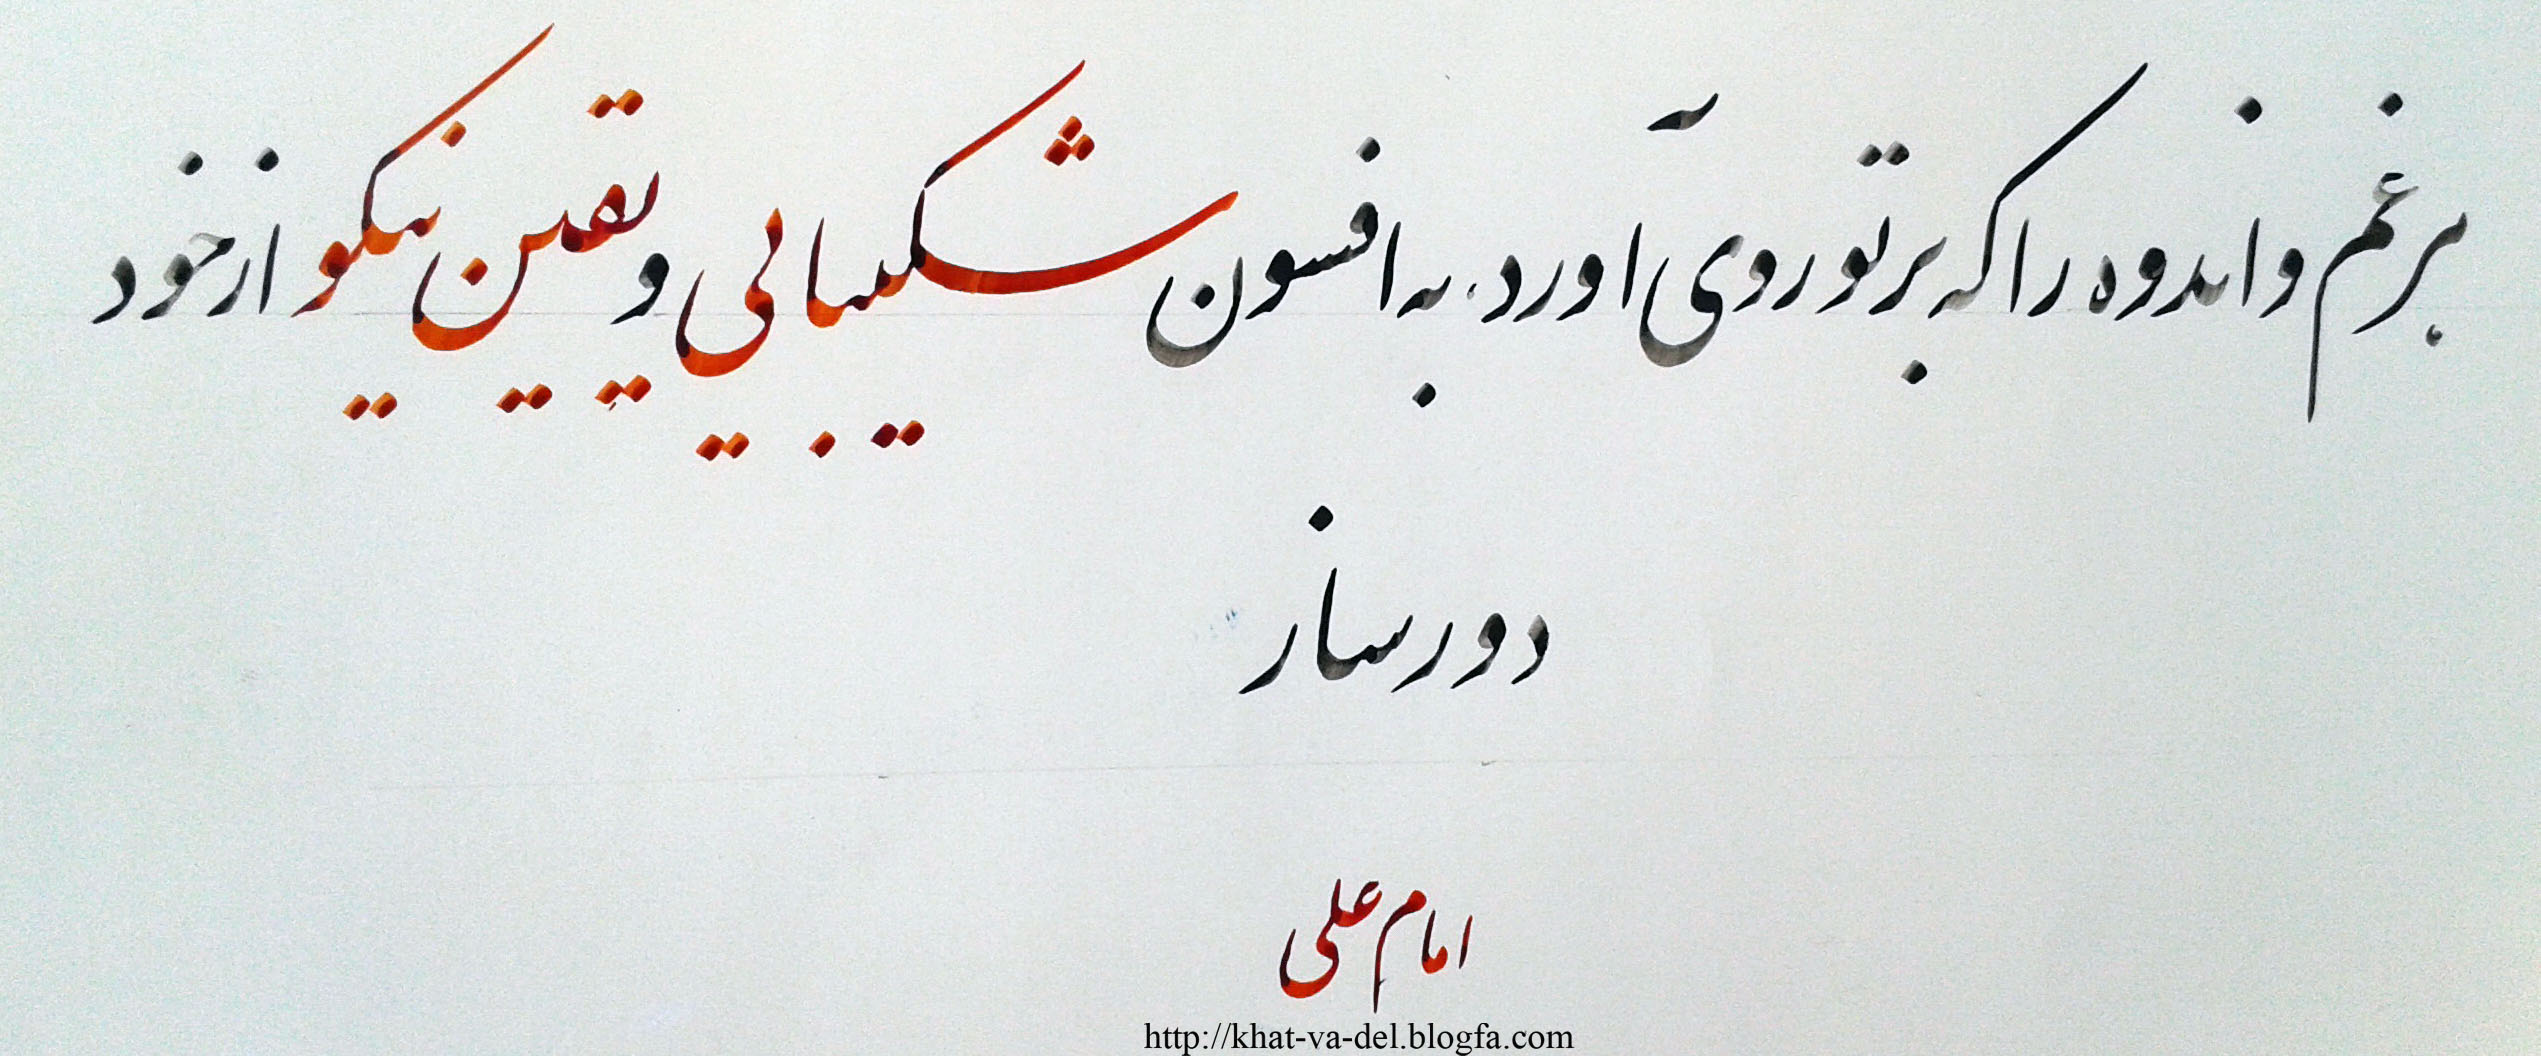 هر غم و اندوه را که بر تو روی آورد، به افسون شکیبایی و یقین نیکو از خود
دور ساز
امام علی
http://khat-va-del.blogfa.com